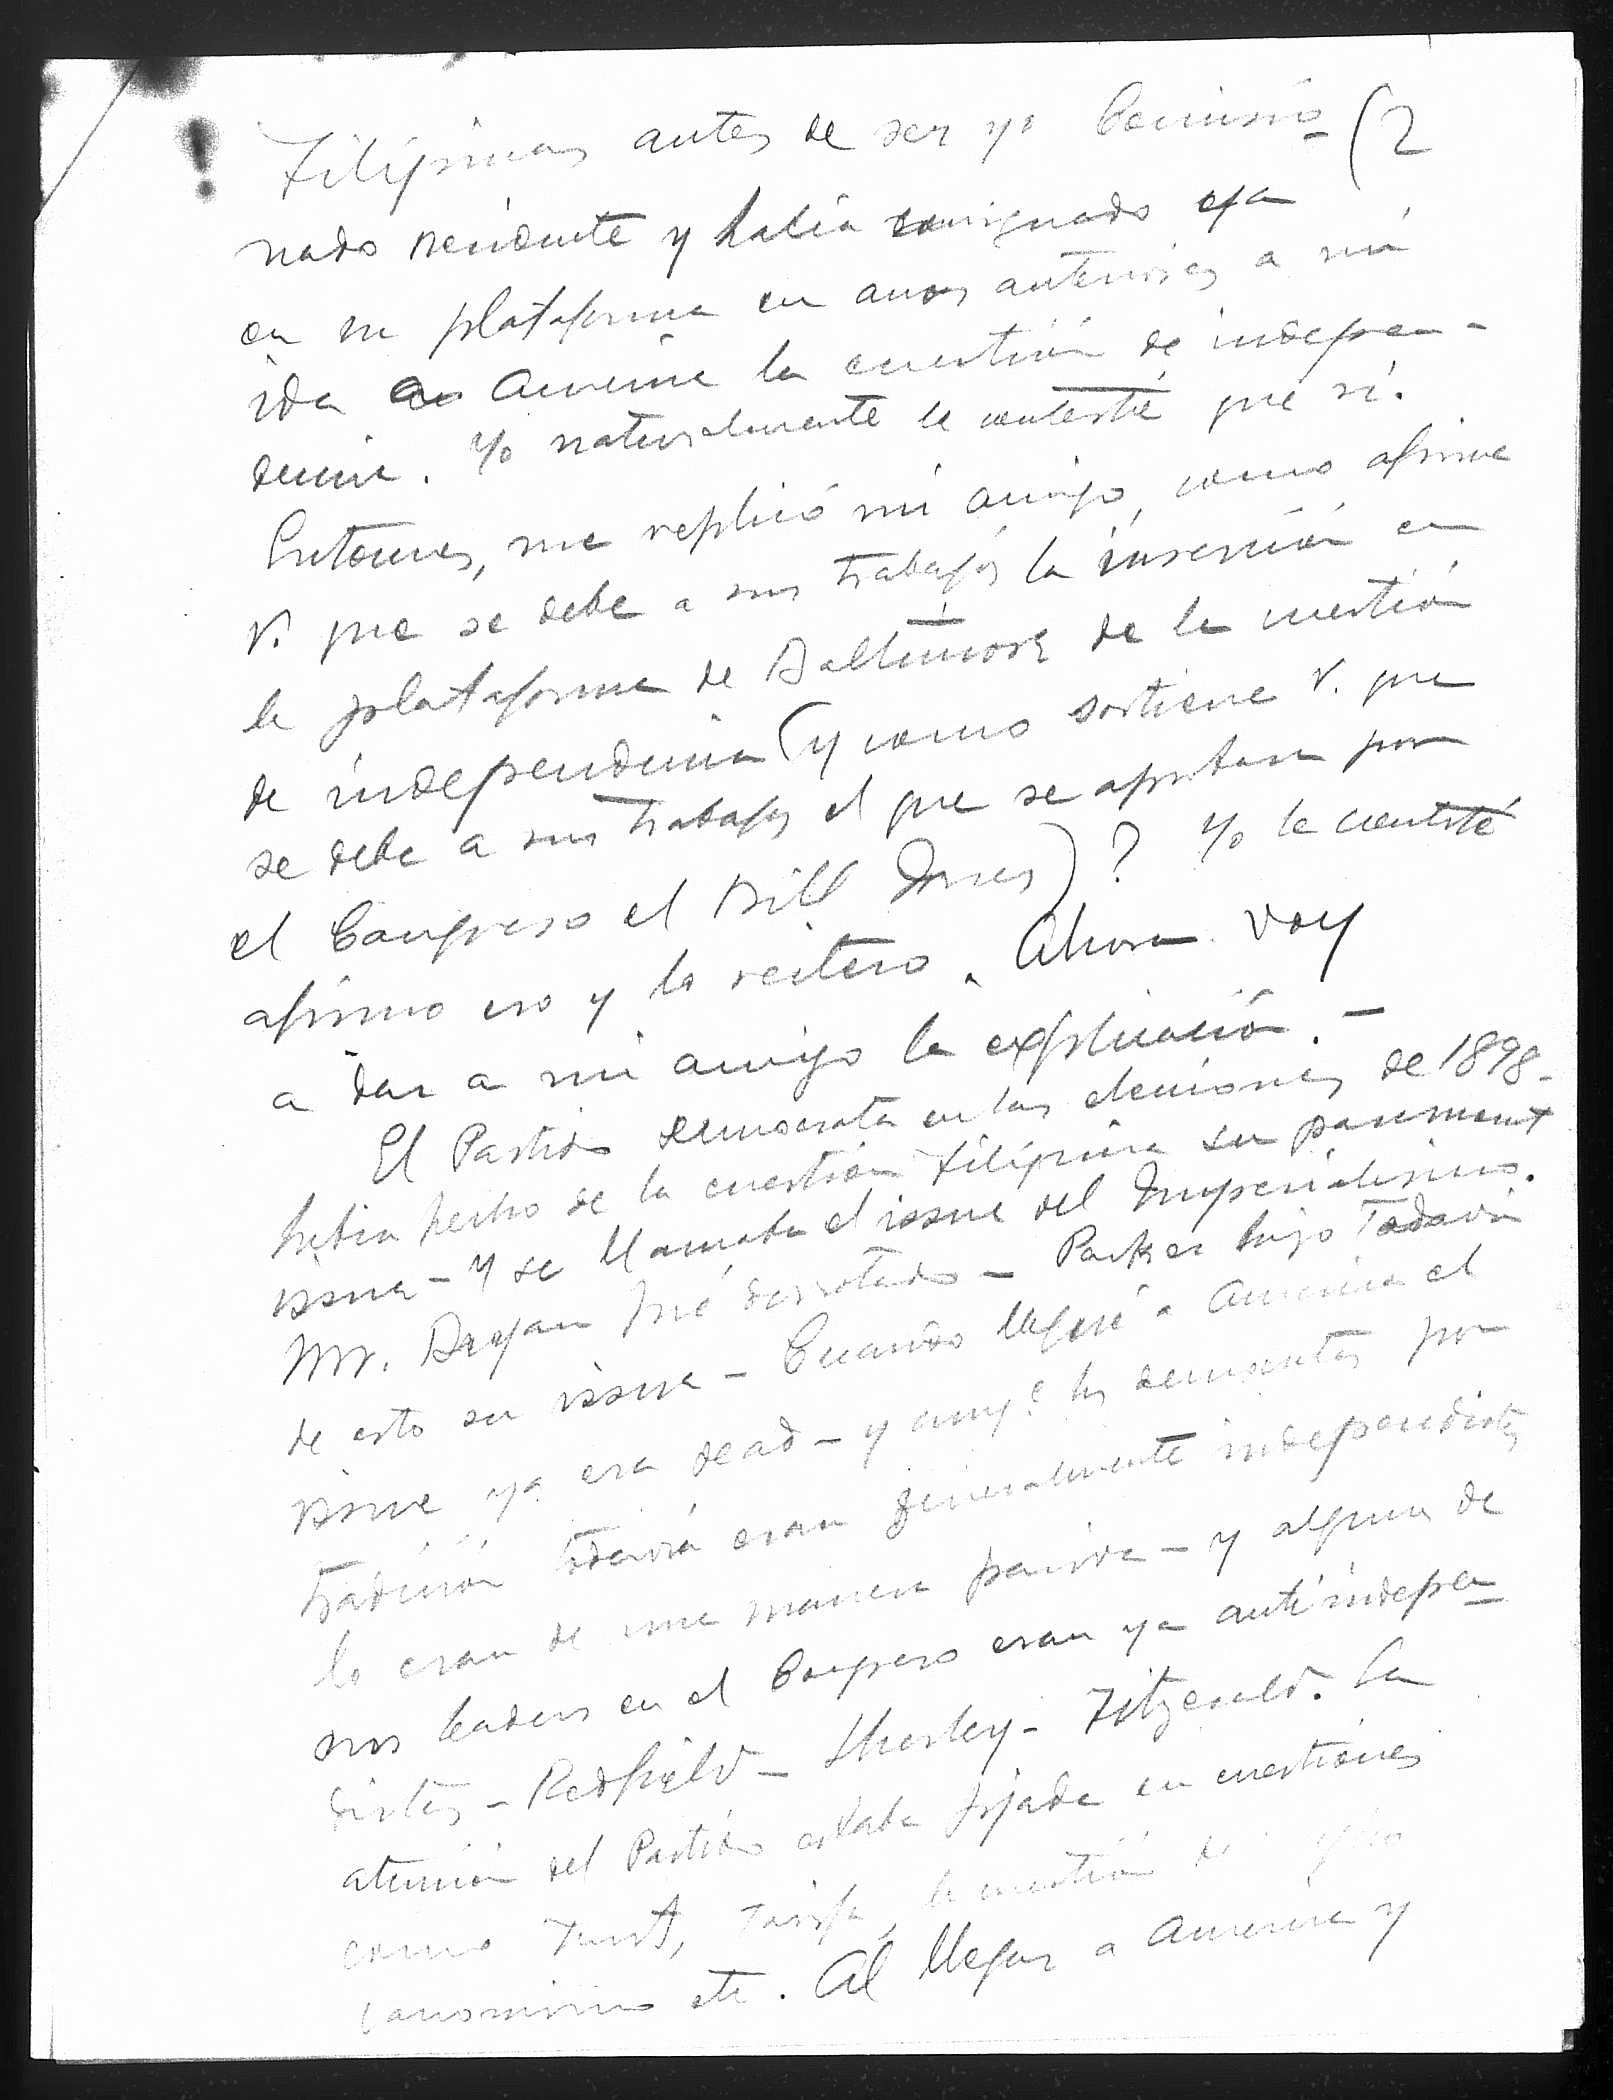 Filipinas antes de ser yo Comisio- (2
nado Residente y había consignado ya
en su plataforma en anos anteriores a mi
ida a America la cuestión de indepen-
dencia. Yo naturalmente le contesté que sí.
Entonces, me replicó mi amigo, como afirma
V. que se debe a sus trabajos la inserción en
la plataforma de Baltimore de la cuestión
de independencia (y como sostiene V. que
se debe a sus trabajos el que se aprobara por
el Congreso el Bill Jones)? Yo le contesté
afirmo eso y lo reitero. Ahora voy
a dar a mi amigo la explicación.-
El Partido democrata en las elecciones de 1898-
habia hecho de la cuestión Filipina su paramount
issue - y se llamaba el issue del Imperialismo.
Mr. Bryan fué derrotado - Parker hizo Todavia
de esto su issue - Cuando llegué a America el
issue ya era dead - y aunqe los democratas por
tradición todavía eran generalmente independistas
lo eran de una manera pasiva - y algunos de
sus leaders en el Congreso eran ya antiindepen-
distas - Redfield - Sherley - Fitzgerald. La
atención del Partido estaba fijada en cuestiones
como Trust, Tarifa, la cuestión de
etc. Al llegar a America y